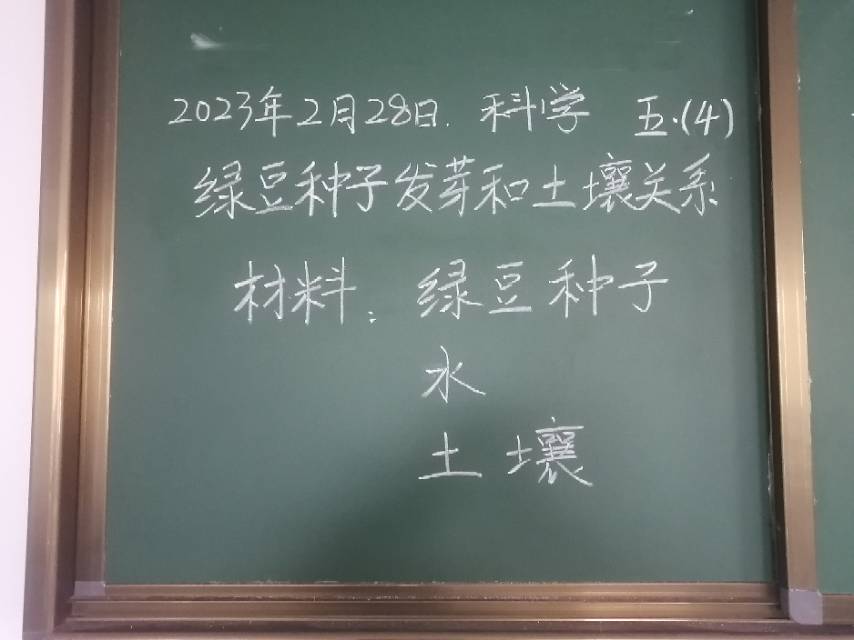 2023年2月28日. 科学 五.(4)
绿豆种子发芽和土壤关系
材料: 绿豆种子
水
土壤